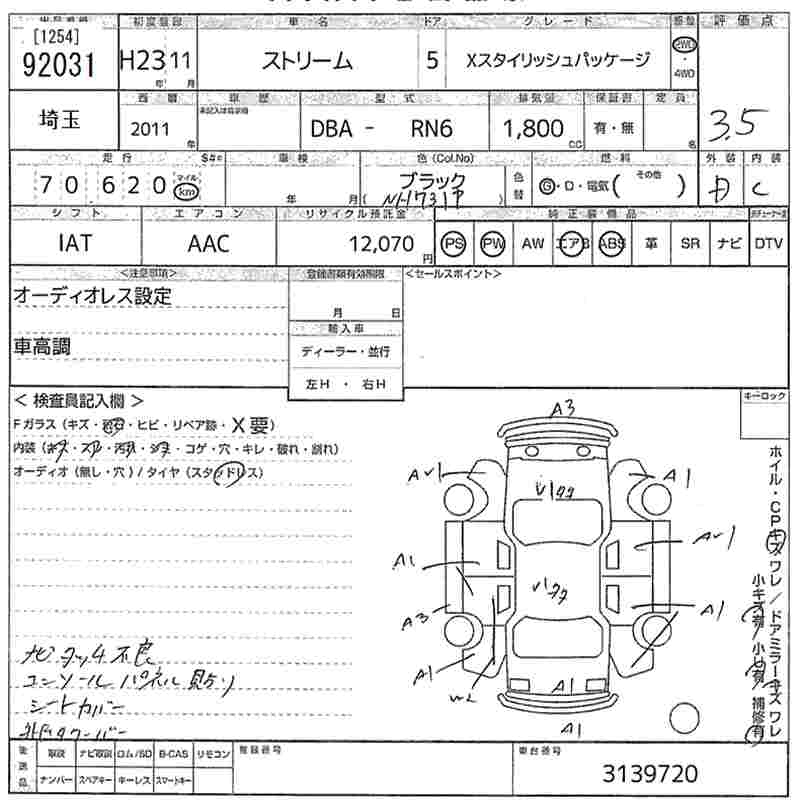 初度登録 車名 ドア グレード 評価点
[1254]
92031 H23 11 ストリーム 5 Xスタイリッシュパッケージ 2WD・4WD
年 月
3.5
埼玉 西暦 車歴 型式 排気量 保証書 定員
2011 年 DBA - RN6 1,800 cc 有・無 名
走行 車検 色(Col.No) 燃料 外装 内装
70620 マイル km 年 月 ブラック 色替 G・D・電気( その他 ) D C
( NH731P )
シフト エアコン リサイクル預託金 純正装備品
IAT AAC 12,070 円 PS PW AW エアB ABS 革 SR ナビ DTV
<注意事項> 登録書類有効期限 <セールスポイント>
オーディオレス設定
月 日
輸入車
車高調 ディーラー・並行
左H ・ 右H
< 検査員記入欄 > キーロック
Fガラス (キズ・ ・ヒビ・リペア跡・X要)
内装 (キズ・スレ・汚れ・ ・コゲ・穴・キレ・破れ・割れ)
オーディオ (無し・穴) / タイヤ (スタッドレス)
ホイル・CPキズ ワレ / ドアミラーキズ ワレ
小キズ有 / 小凹有 / 補修有
A3
A1 A1
V177
A1
A1
V177
A3 A1
A1 A1
A1
ナビタッチ不良
コンソールパネル貼り
シートカバー
後送品 取説 ナビ取説 ロム/SD B-CAS リモコン 登録番号 車台番号
ナンバー スペアキー キーレス スマートキー 3139720